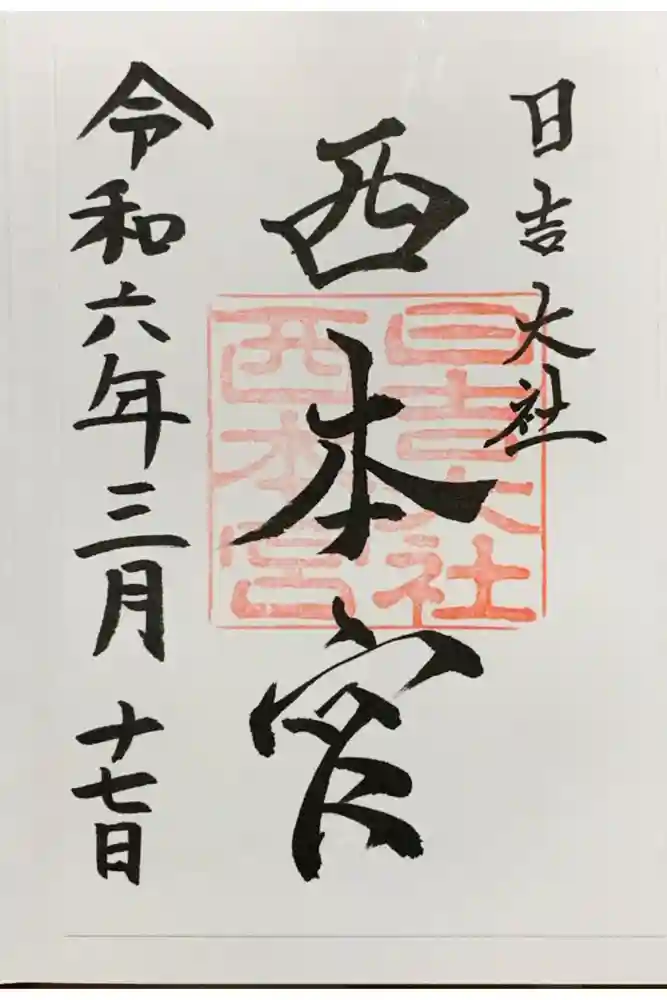 日吉大社
西本宮
令和六年三月十七日
日吉大社
西本宮